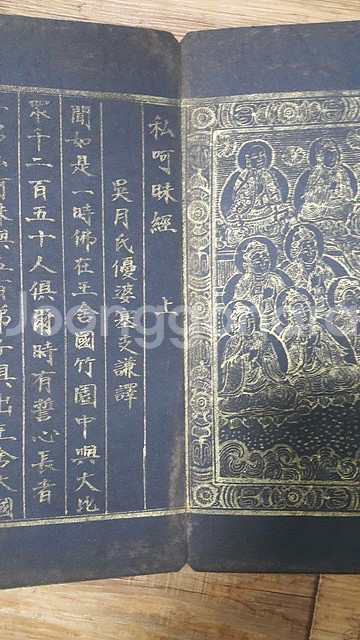 私呵昧經 上
吳月氏優婆塞支謙譯
聞如是一時佛在王舍國竹園中與大比
眾千二百五十人俱爾時有誓心長者
Joongg